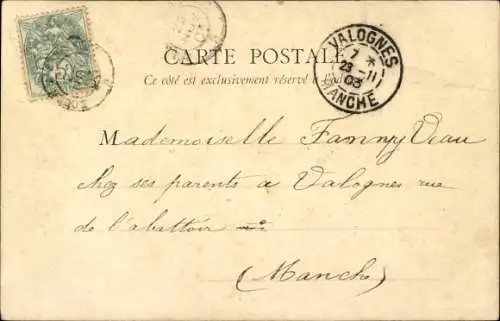 CARTE POSTALE
Ce côté est exclusivement réservé à l'ad
VALOGNES
7 *
23 - 11
03
MANCHE
Mademoiselle Fanny Veau
chez ses parents a Valognes rue
de l'abattoir
(Manche)